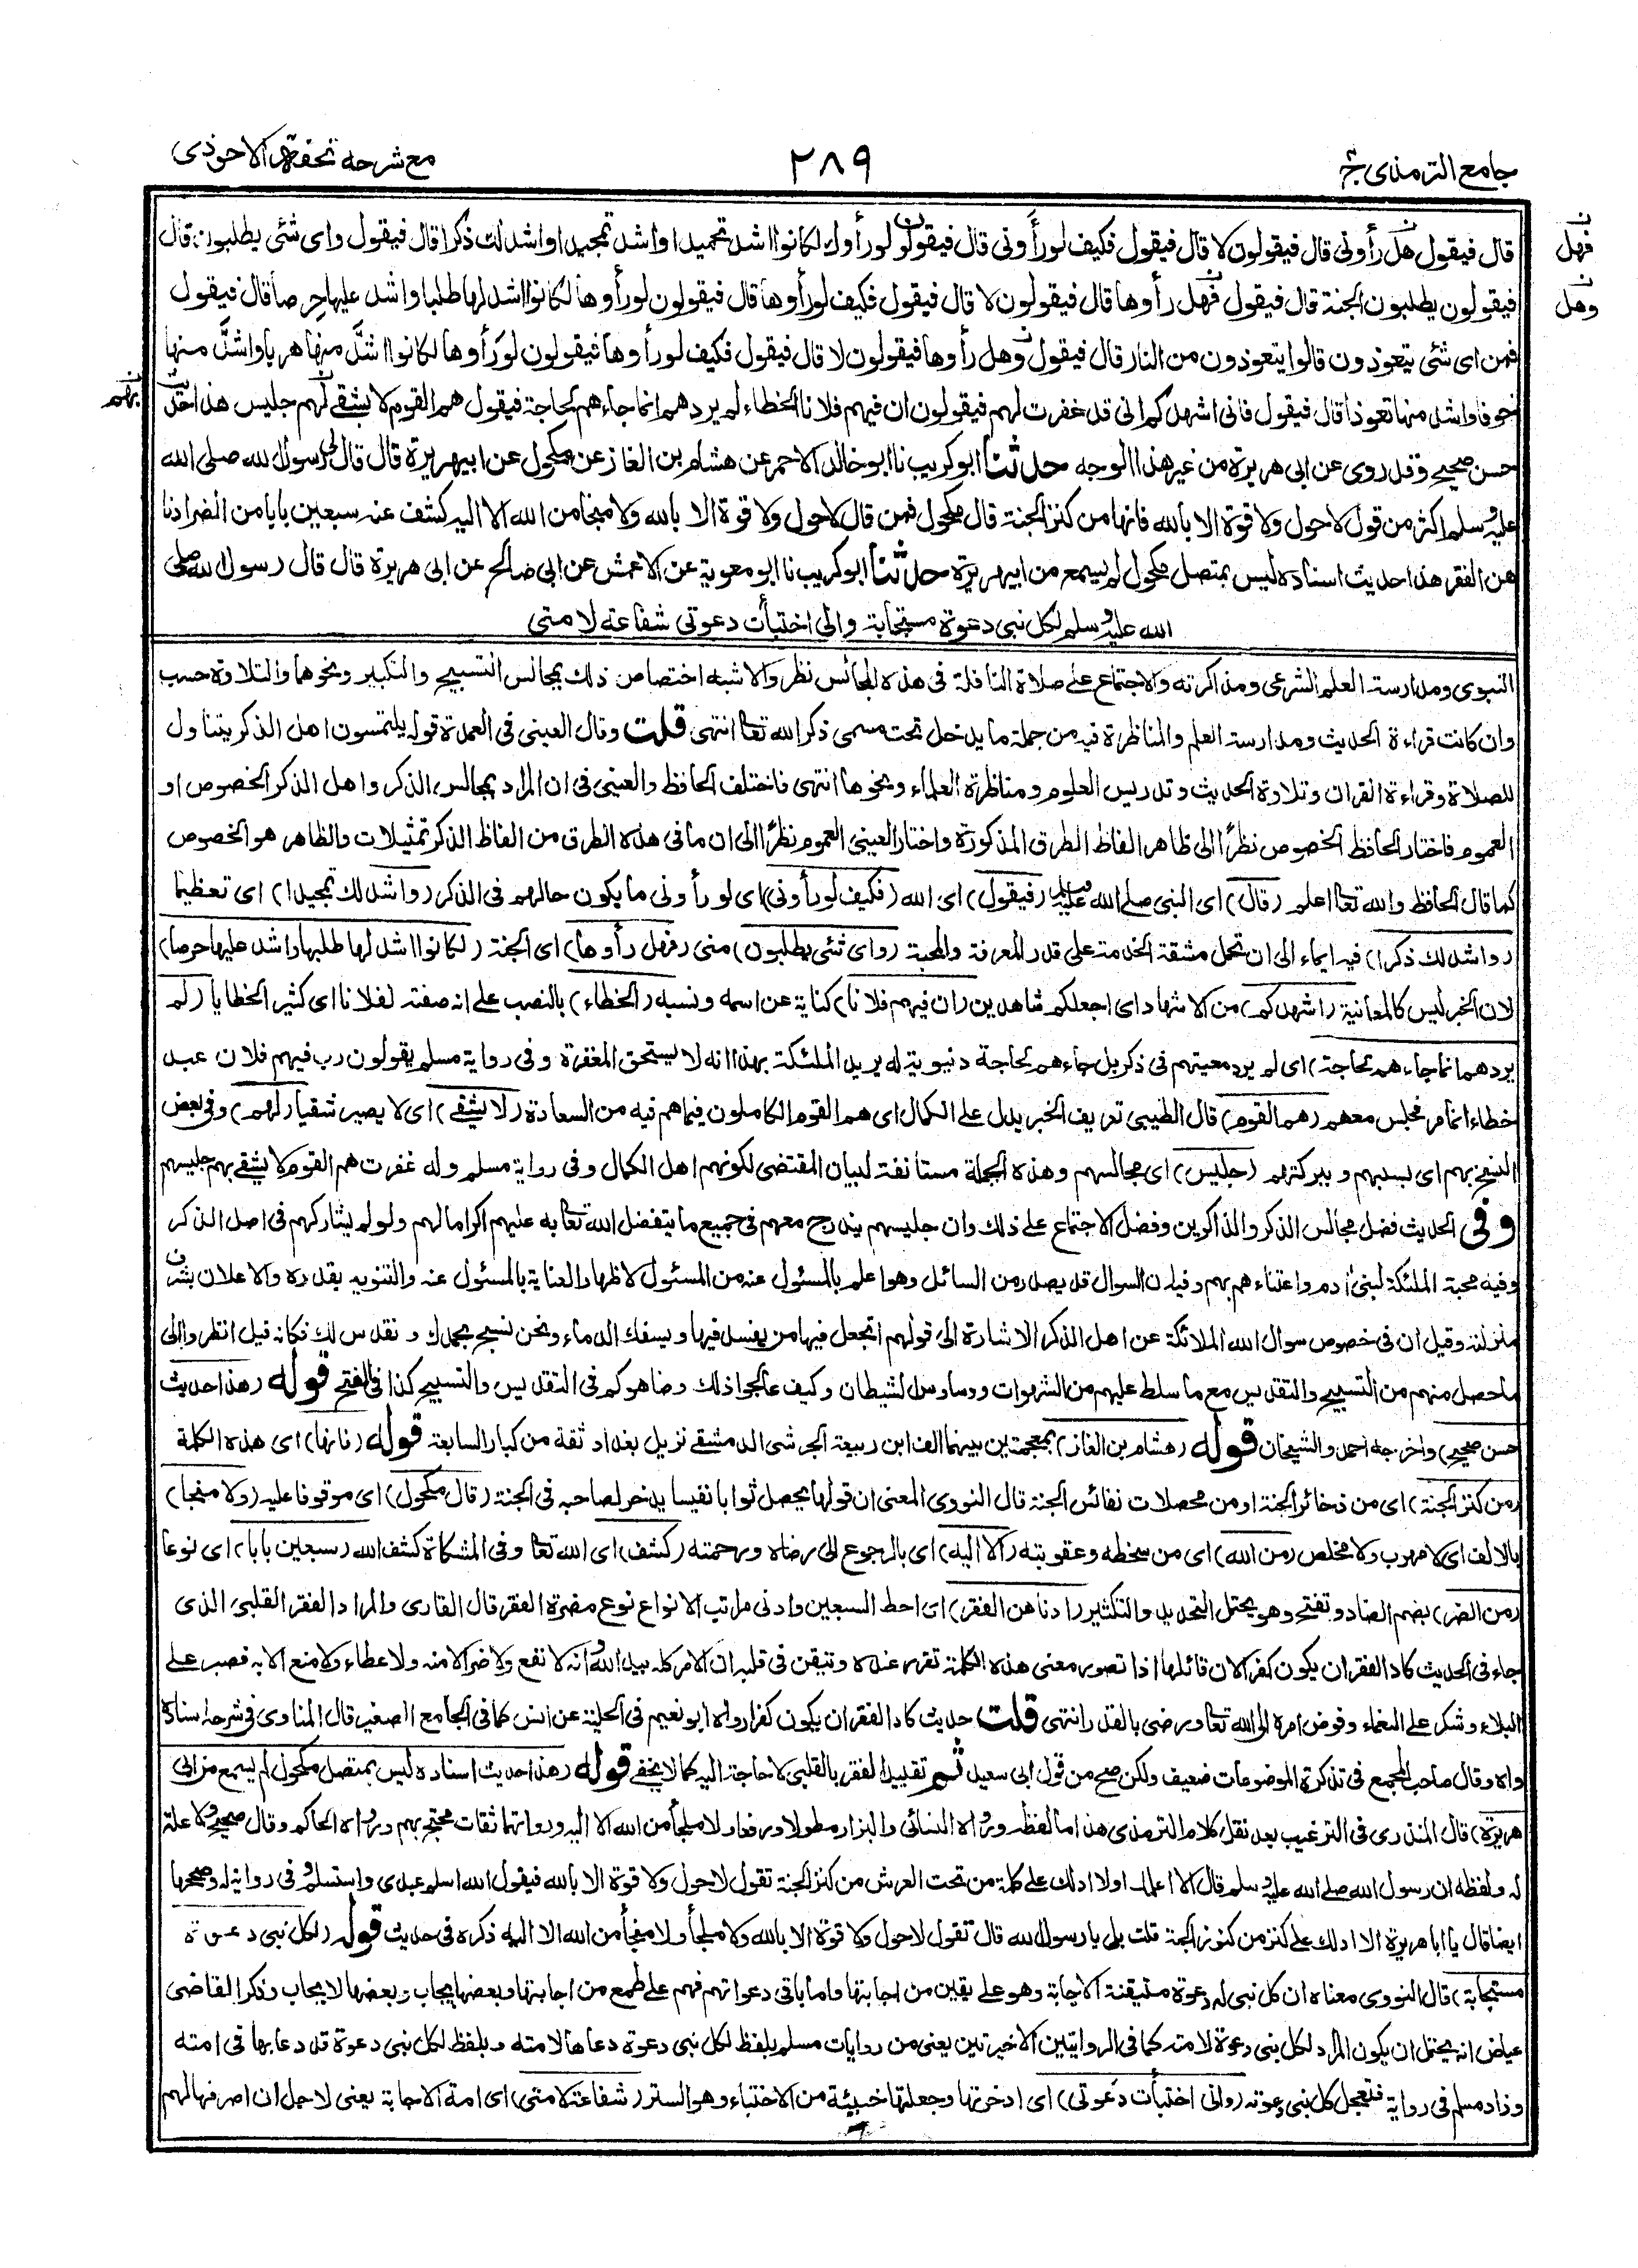 جامع الترمذى ج٤
٢٨٩
مع شرحه تحفة الاحوذى
قال فيقول هل رأونى قال فيقولون لا قال فيقول فكيف لو رأونى قال فيقولون لو رأوك لكانوا اشد تحميدا واشد تمجيدا واشد لك ذكرا قال فيقول واى شئى يطلبون قال
فهل
فيقولون يطلبون الجنة قال فيقول فهل رأوها قال فيقولون لا قال فيقول فكيف لو رأوها قال فيقولون لو رأوها لكانوا اشد لها طلبا واشد عليها حرصا قال فيقول
وهل
فمن اى شئى يتعوذون قالوا يتعوذون من النار قال فيقول وهل رأوها فيقولون لا قال فيقول فكيف لو رأوها فيقولون لو رأوها لكانوا اشد منها هربا واشد منها
خوفا واشد منها تعوذا قال فيقول فانى اشهدكم انى قد غفرت لهم فيقولون ان فيهم فلانا الخطاء لم يردهم انما جاءهم لحاجة فيقول هم القوم لا يشقى لهم جليس هذا حديث
بهم
حسن صحيح وقد روى عن ابى هريرة من غير هذا الوجه حدثنا ابو كريب نا ابو خالد الاحمر عن هشام بن الغاز عن مكحول عن ابى هريرة قال قال لى رسول الله صلى الله
عليه وسلم اكثر من قول لا حول ولا قوة الا بالله فانها من كنز الجنة قال مكحول فمن قال لا حول ولا قوة الا بالله ولا منجا من الله الا اليه كشف عنه سبعين بابا من الضر ادنا
هن الفقر هذا حديث اسناده ليس بمتصل مكحول لم يسمع من ابى هريرة حدثنا ابو كريب نا ابو معوية عن الاعمش عن ابى صالح عن ابى هريرة قال قال رسول الله صلى
الله عليه وسلم لكل نبى دعوة مستجابة وانى اختبأت دعوتى شفاعة لامتى
النبوى ومدارسة العلم الشرعى ومذاكرته والاجتماع على صلاة النافلة فى هذه المجالس نظر والاشبه اختصاص ذلك بمجالس التسبيح والتكبير ونحوهما والتلاوة حسب
وان كانت قراءة الحديث ومدارسة العلم والمناظرة فيه من جملة ما يدخل تحت مسمى ذكر الله تعالى انتهى قلت وقال العينى فى العمدة قوله يلتمسون اهل الذكر يتناول
للصلاة وقراءة القران وتلاوة الحديث وتدريس العلوم ومناظرة العلماء ونحوها انتهى فاختلف الحافظ والعينى فى ان المراد بمجالس الذكر واهل الذكر الخصوص او
العموم فاختار الحافظ الخصوص نظرًا الى ظاهر الفاظ الطرق المذكورة واختار العينى العموم نظرًا الى ان ما فى هذه الطرق من الفاظ الذكر تمثيلات والظاهر هو الخصوص
كما قال الحافظ والله تعالى اعلم (قال) اى النبى صلى الله عليه وسلم (فيقول) اى الله (فكيف لو رأونى) اى لو رأونى ما يكون حالهم فى الذكر (واشد لك تمجيدا) اى تعظيما
(واشد لك ذكرا) فيه ايماء الى ان تحمل مشقة الخدمة على قدر المعرفة والمحبة (واى شئى يطلبون) منى (فهل رأوها) اى الجنة (لكانوا اشد لها طلبا واشد عليها حرصا)
لان الخبر ليس كالمعاينة (اشهدكم) من الاشهاد اى اجعلكم شاهدين (ان فيهم فلانا) كناية عن اسمه ونسبه (الخطاء) بالنصب على انه صفته لفلانا اى كثير الخطايا (لم
يردهم انما جاءهم لحاجة) اى لم يرد معيتهم فى ذكر بل جاءهم لحاجة دنيوية له يريد الملئكة بهذا انه لا يستحق المغفرة وفى رواية مسلم يقولون رب فيهم فلان عبد
خطاء انما مر فجلس معهم (هم القوم) قال الطيبى تعريف الخبر يدل على الكمال اى هم القوم الكاملون فيما هم فيه من السعادة (لا يشقى) اى لا يصير شقيا (لهم) وفى بعض
النسخ بهم اى بسببهم وببركتهم (جليس) اى مجالسهم وهذه الجملة مستانفة لبيان المقتضى لكونهم اهل الكمال وفى رواية مسلم وله غفرت هم القوم لا يشقى بهم جليسهم
وفى الحديث فضل مجالس الذكر والذاكرين وفضل الاجتماع على ذلك وان جليسهم يندرج معهم فى جميع ما يتفضل الله تعالى به عليهم اكراما لهم ولو لم يشاركهم فى اصل الذكر
وفيه محبة الملئكة لبنى أدم واعتناءهم بهم وفيه ان السوال قد يصدر من السائل وهو اعلم بالمسئول عنه من المسئول لاظهار العناية بالمسئول عنه والتنويه بقدره والاعلان بشرف
منزلته وقيل ان فى خصوص سوال الله الملائكة عن اهل الذكر الاشارة الى قولهم اتجعل فيها من يفسد فيها ويسفك الدماء ونحن نسبح بحمدك ونقدس لك فكانه قيل انظروا الى
ما حصل منهم من التسبيح والتقديس مع ما سلط عليهم من الشهوات ووساوس الشيطان وكيف عالجوا ذلك وضاهوكم فى التقديس والتسبيح كذا فى الفتح قوله (هذا حديث
حسن صحيح) واخرجه احمد والشيخان قوله (هشام بن الغاز) بمعجمتين بينهما الف ابن ربيعة الجرشى الدمشقى نزيل بغداد ثقة من كبار السابعة قوله (فانها) اى هذه الكلمة
(من كنز الجنة) اى من ذخائر الجنة او من محصلات نفائس الجنة قال النووى المعنى ان قولها يحصل ثوابا نفيسا يدخر لصاحبه فى الجنة (قال مكحول) اى موقوفا عليه (ولا منجا)
بالالف اى لا مهرب ولا مخلص (من الله) اى من سخطه وعقوبته (الا اليه) اى بالرجوع الى رضاه ورحمته (كشف) اى الله تعالى وفى المشكاة كشف الله (سبعين بابا) اى نوعا
(من الضر) بضم الضاد وتفتح وهو يحتمل التحديد والتكثير (ادناهن الفقر) اى احط السبعين وادنى مراتب الانواع نوع مضرة الفقر قال القارى والمراد الفقر القلبى الذى
جاء فى الحديث كاد الفقر ان يكون كفرا لان قائلها اذا تصور معنى هذه الكلمة تقرر عنده وتيقن فى قلبه ان الامر كله بيد الله وانه لا نفع ولا ضر الا منه ولا عطاء ولا منع الا به فصبر على
البلاء وشكر على النعماء وفوض امره الى الله تعالى ورضى بالقدر انتهى قلت حديث كاد الفقر ان يكون كفرا رواه ابو نعيم فى الحلية عن انس كما فى الجامع الصغير قال المناوى فى شرحه اسناده
واه وقال صاحب المجمع فى تذكرة الموضوعات ضعيف ولكن صح من قول ابى سعيد ثم تقييد الفقر بالقلبى لا حاجة اليه كما لا يخفى قوله (هذا حديث اسناده ليس بمتصل مكحول لم يسمع من ابى
هريرة) قال المنذرى فى الترغيب بعد نقل كلام الترمذى هذا ما لفظه ورواه النسائى والبزار مطولا ورفعا ولا ملجأ من الله الا اليه ورواتهما ثقات محتج بهم ورواه الحاكم وقال صحيح ولا علة
له ولفظه ان رسول الله صلى الله عليه وسلم قال الا اعلمك او الا ادلك على كلمة من تحت العرش من كنز الجنة تقول لا حول ولا قوة الا بالله فيقول الله اسلم عبدى واستسلم وفى رواية له وصححها
ايضا قال يا ابا هريرة الا ادلك على كنز من كنوز الجنة قلت بلى يا رسول الله قال تقول لا حول ولا قوة الا بالله ولا ملجأ ولا منجأ من الله الا اليه ذكره فى حديث قوله (لكل نبى دعوة
مستجابة) قال النووى معناه ان كل نبى له دعوة متيقنة الاجابة وهو على يقين من اجابتها واما باقى دعواتهم فهم على طمع من اجابتها وبعضها يجاب وبعضها لا يجاب وذكر القاضى
عياض انه يحتمل ان يكون المراد لكل نبى دعوة لامته كما فى الروايتين الاخيرتين يعنى من روايات مسلم بلفظ لكل نبى دعوة دعاها لامته وبلفظ لكل نبى دعوة قد دعا بها فى امته
وزاد مسلم فى رواية فتعجل كل نبى دعوته (وانى اختبأت دعوتى) اى ادخرتها وجعلتها خبيئة من الاختباء وهو الستر (شفاعة لامتى) اى امة الاجابة يعنى لاجل ان اصرفها لهم